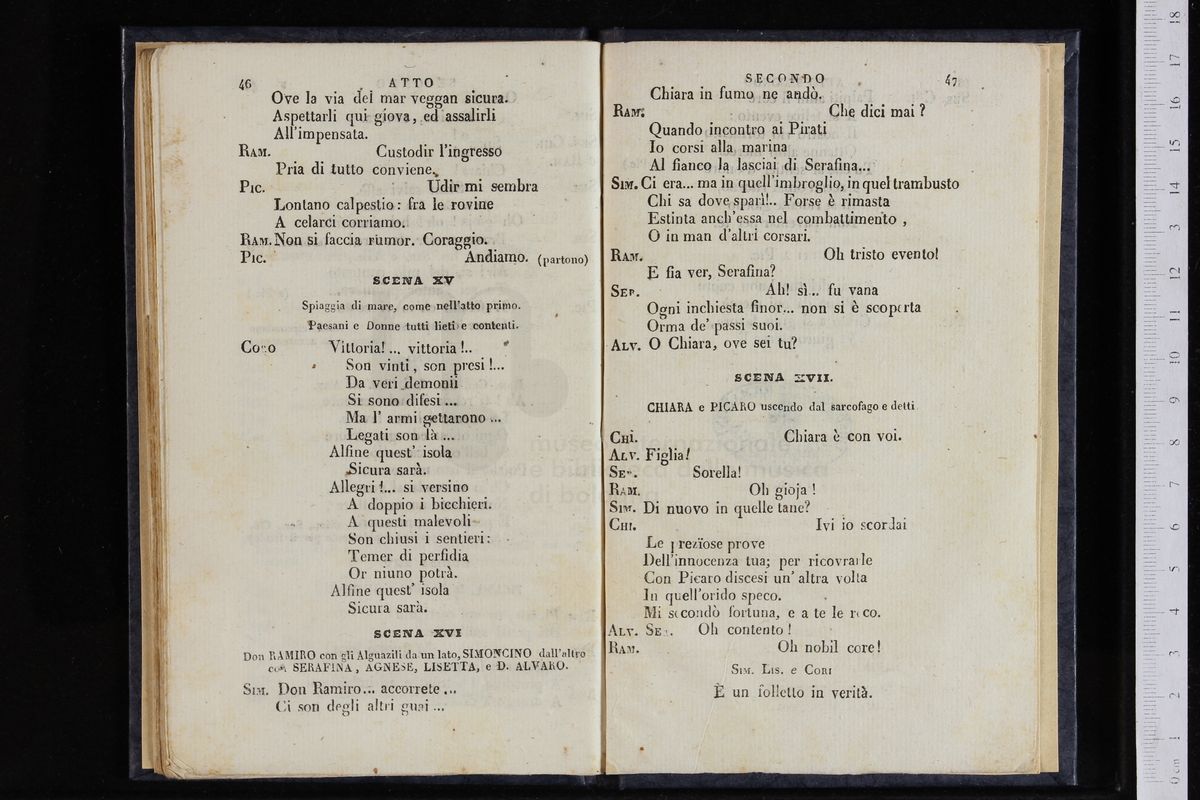 46 ATTO
Ove la via del mar veggan sicura.
Aspettarli qui giova, ed assalirli
All'impensata.
RAM. Custodir l'ingresso
Pria di tutto conviene.
PIC. Udir mi sembra
Lontano calpestio: fra le rovine
A celarci corriamo.
RAM. Non si faccia rumor. Coraggio.
PIC. Andiamo. (partono)
SCENA XV
Spiaggia di mare, come nell'atto primo.
Paesani e Donne tutti lieti e contenti.
CORO Vittoria!... vittoria!..
Son vinti, son presi!...
Da veri demonii
Si sono difesi...
Ma l' armi gettarono...
Legati son là...
Alfine quest' isola
Sicura sarà.
Allegri!... si versino
A doppio i bicchieri.
A questi malevoli
Son chiusi i sentieri:
Temer di perfidia
Or niuno potrà.
Alfine quest' isola
Sicura sarà.
SCENA XVI
Don RAMIRO con gli Alguazili da un lato, SIMONCINO dall'altro
con SERAFINA, AGNESE, LISETTA, e D. ALVARO.
SIM. Don Ramiro... accorrete...
Ci son degli altri guai...
SECONDO 47
Chiara in fumo ne andò.
RAM. Che dici mai?
Quando incontro ai Pirati
Io corsi alla marina
Al fianco la lasciai di Serafina...
SIM. Ci era... ma in quell'imbroglio, in quel trambusto
Chi sa dove sparì!.. Forse è rimasta
Estinta anch'essa nel combattimento,
O in man d'altri corsari.
RAM. Oh tristo evento!
E fia ver, Serafina?
SER. Ah! sì... fu vana
Ogni inchiesta finor... non si è scoperta
Orma de' passi suoi.
ALV. O Chiara, ove sei tu?
SCENA XVII.
CHIARA e PICARO uscendo dal sarcofago e detti
CHI. Chiara è con voi.
ALV. Figlia!
SER. Sorella!
RAM. Oh gioja!
SIM. Di nuovo in quelle tane?
CHI. Ivi io scordai
Le prezïose prove
Dell'innocenza tua; per ricovrarle
Con Picaro discesi un' altra volta
In quell'orido speco.
Mi secondò fortuna, e a te le reco.
ALV. SER. Oh contento!
RAM. Oh nobil core!
SIM. LIS. e CORI
È un folletto in verità.